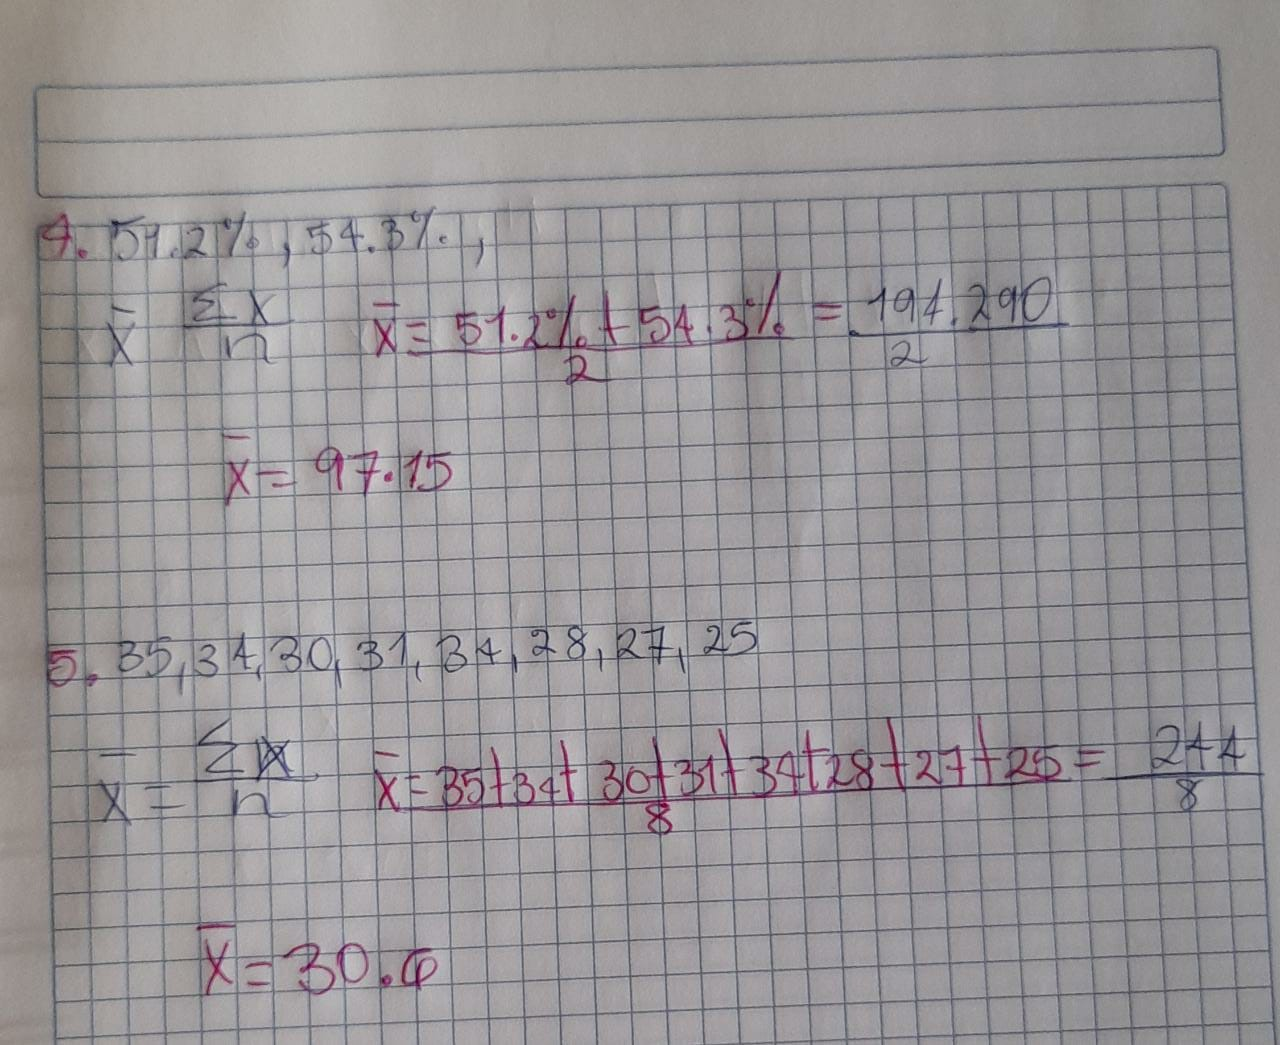 4. 51.2%, 54.3%,
x̄ Σx/n x̄ = 51.2% + 54.3% / 2 = 194.290 / 2
x̄ = 97.15
5. 35, 34, 30, 31, 34, 28, 27, 25
x̄ = Σx/n x̄ = 35+34+30+31+34+28+27+25 / 8 = 244 / 8
x̄ = 30.6